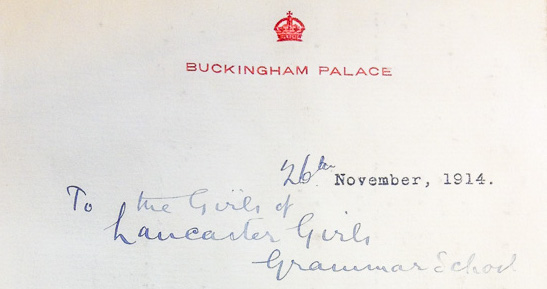 BUCKINGHAM PALACE
26th November, 1914.
To the Girls of
Lancaster Girls
Grammar School